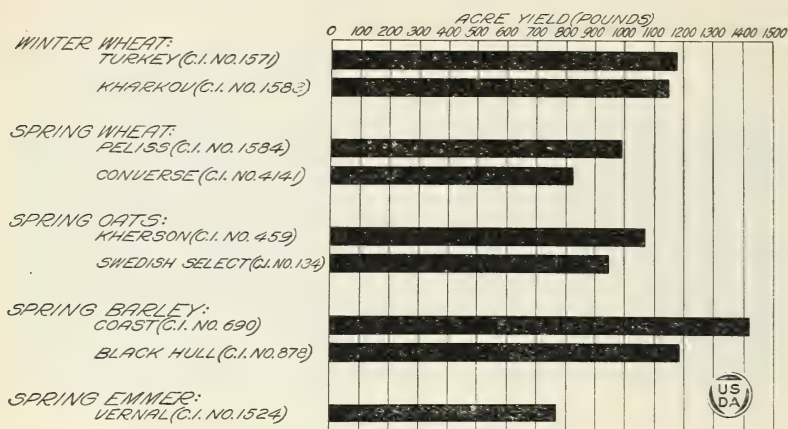 ACRE YIELD (POUNDS)
0 100 200 300 400 500 600 700 800 900 1000 1100 1200 1300 1400 1500
WINTER WHEAT:
TURKEY (C.I. NO. 1571)
KHARKOV (C.I. NO. 1583)
SPRING WHEAT:
PELISS (C.I. NO. 1584)
CONVERSE (C.I. NO. 4141)
SPRING OATS:
KHERSON (C.I. NO. 459)
SWEDISH SELECT (C.I. NO. 134)
SPRING BARLEY:
COAST (C.I. NO. 690)
BLACK HULL (C.I. NO. 878)
SPRING EMMER:
VERNAL (C.I. NO. 1524)
US
DA